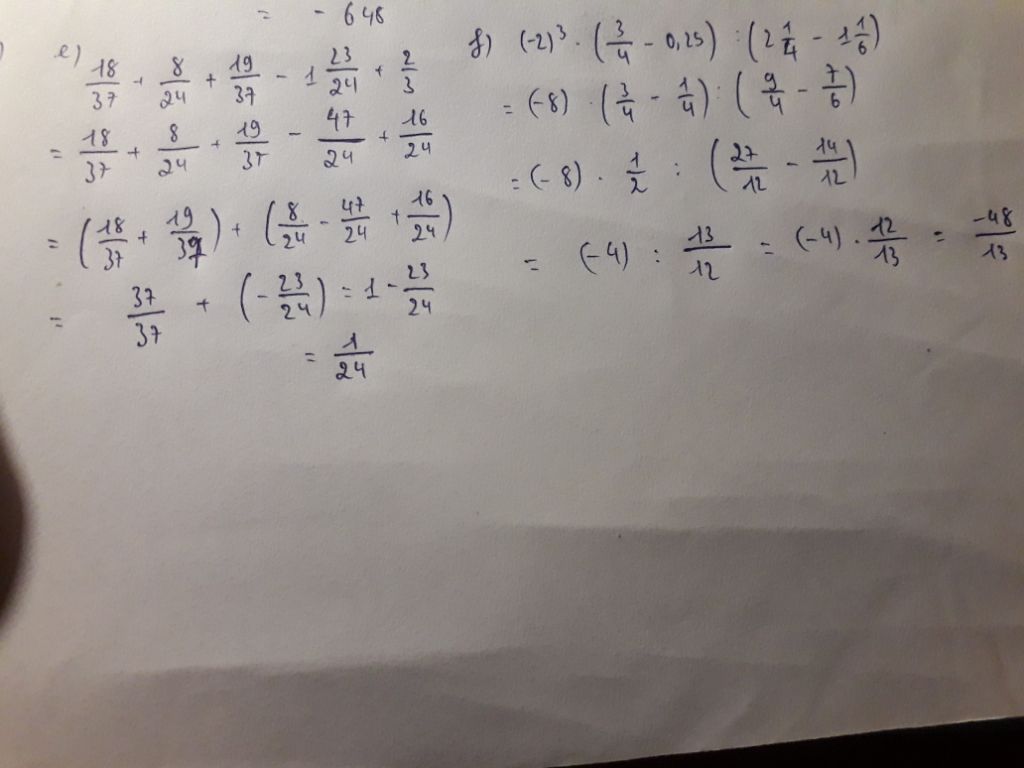 = - 648
e) 18/37 + 8/24 + 19/37 - 1 23/24 + 2/3
= 18/37 + 8/24 + 19/37 - 47/24 + 16/24
= (18/37 + 19/37) + (8/24 - 47/24 + 16/24)
= 37/37 + (- 23/24) = 1 - 23/24
= 1/24
f) (-2)³ · (3/4 - 0,25) : (2 1/4 - 1 1/6)
= (-8) · (3/4 - 1/4) : (9/4 - 7/6)
= (-8) · 1/2 : (27/12 - 14/12)
= (-4) : 13/12 = (-4) · 12/13 = -48/13